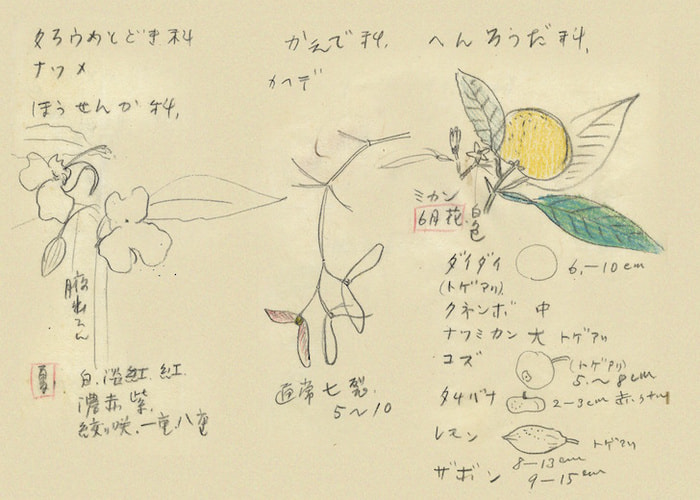 クろうめもどき科
ナツメ
ほうせんか科、
腋出てん
夏 白.淡紅.紅.
濃赤 紫.
絞り咲.一重.八重
かえで科.
カヘデ
通常七裂.
5〜10
へんろうだ科,
ミカン
6月花.白色
ダイダイ 6.−10cm
(トゲアリ)
クネンボ 中
ナツミカン 大 トゲアリ
コズ (トゲアリ)
5.〜8cm
タチバナ 2−3cm
レモン トゲアリ
8−13cm
ザボン 9−15cm